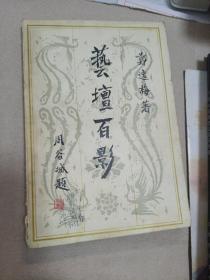 鄭逸梅著
藝壇百影
周谷城題